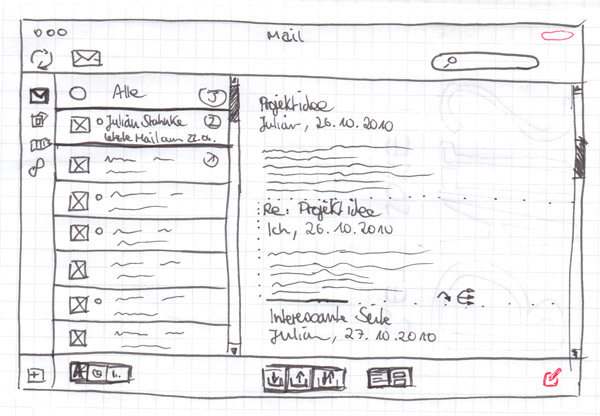 Mail
Alle 3
Julian Stahnke 2
letzte Mail am 22.04.
1
Projektidee
Julian, 26.10.2010
Re: Projektidee
Ich, 26.10.2010
Interessante Seite
Julian, 27.10.2010